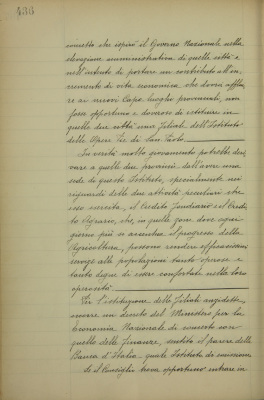 cinetta che ispirò il Governo Nazionale nella
elevazione amministrativa di quelle città e
nell'intento di portare un contributo all'in=
cremento di vita economica che dovrà afflui=
re ai nuovi Capoluoghi provinciali, non
fosse opportuno e doveroso di istituire in
quelle due città una filiale dell'Istituto
delle Opere Pie di San Paolo.
In verità molto giovamento potrebbe deri=
vare a quelle due provincie dall'avere una
sede di questo Istituto, specialmente nei
riguardi delle due attività peculiari che
esso esercita, il Credito Fondiario e il Credi=
to Agrario, che, in quelle zone dove ogni
giorno più si accentua il progresso della
Agricoltura, possono rendere efficacissimi
servizi alle popolazioni tanto operose e
tanto degne di essere confortate nella loro
operosità.
Per l'istituzione delle filiali anzidette,
occorre un decreto del Ministro per la
Economia Nazionale di concerto con
quello delle Finanze, sentito il parere della
Banca d'Italia quale Istituto di emissione
Se il Consiglio trova opportuno entrare in